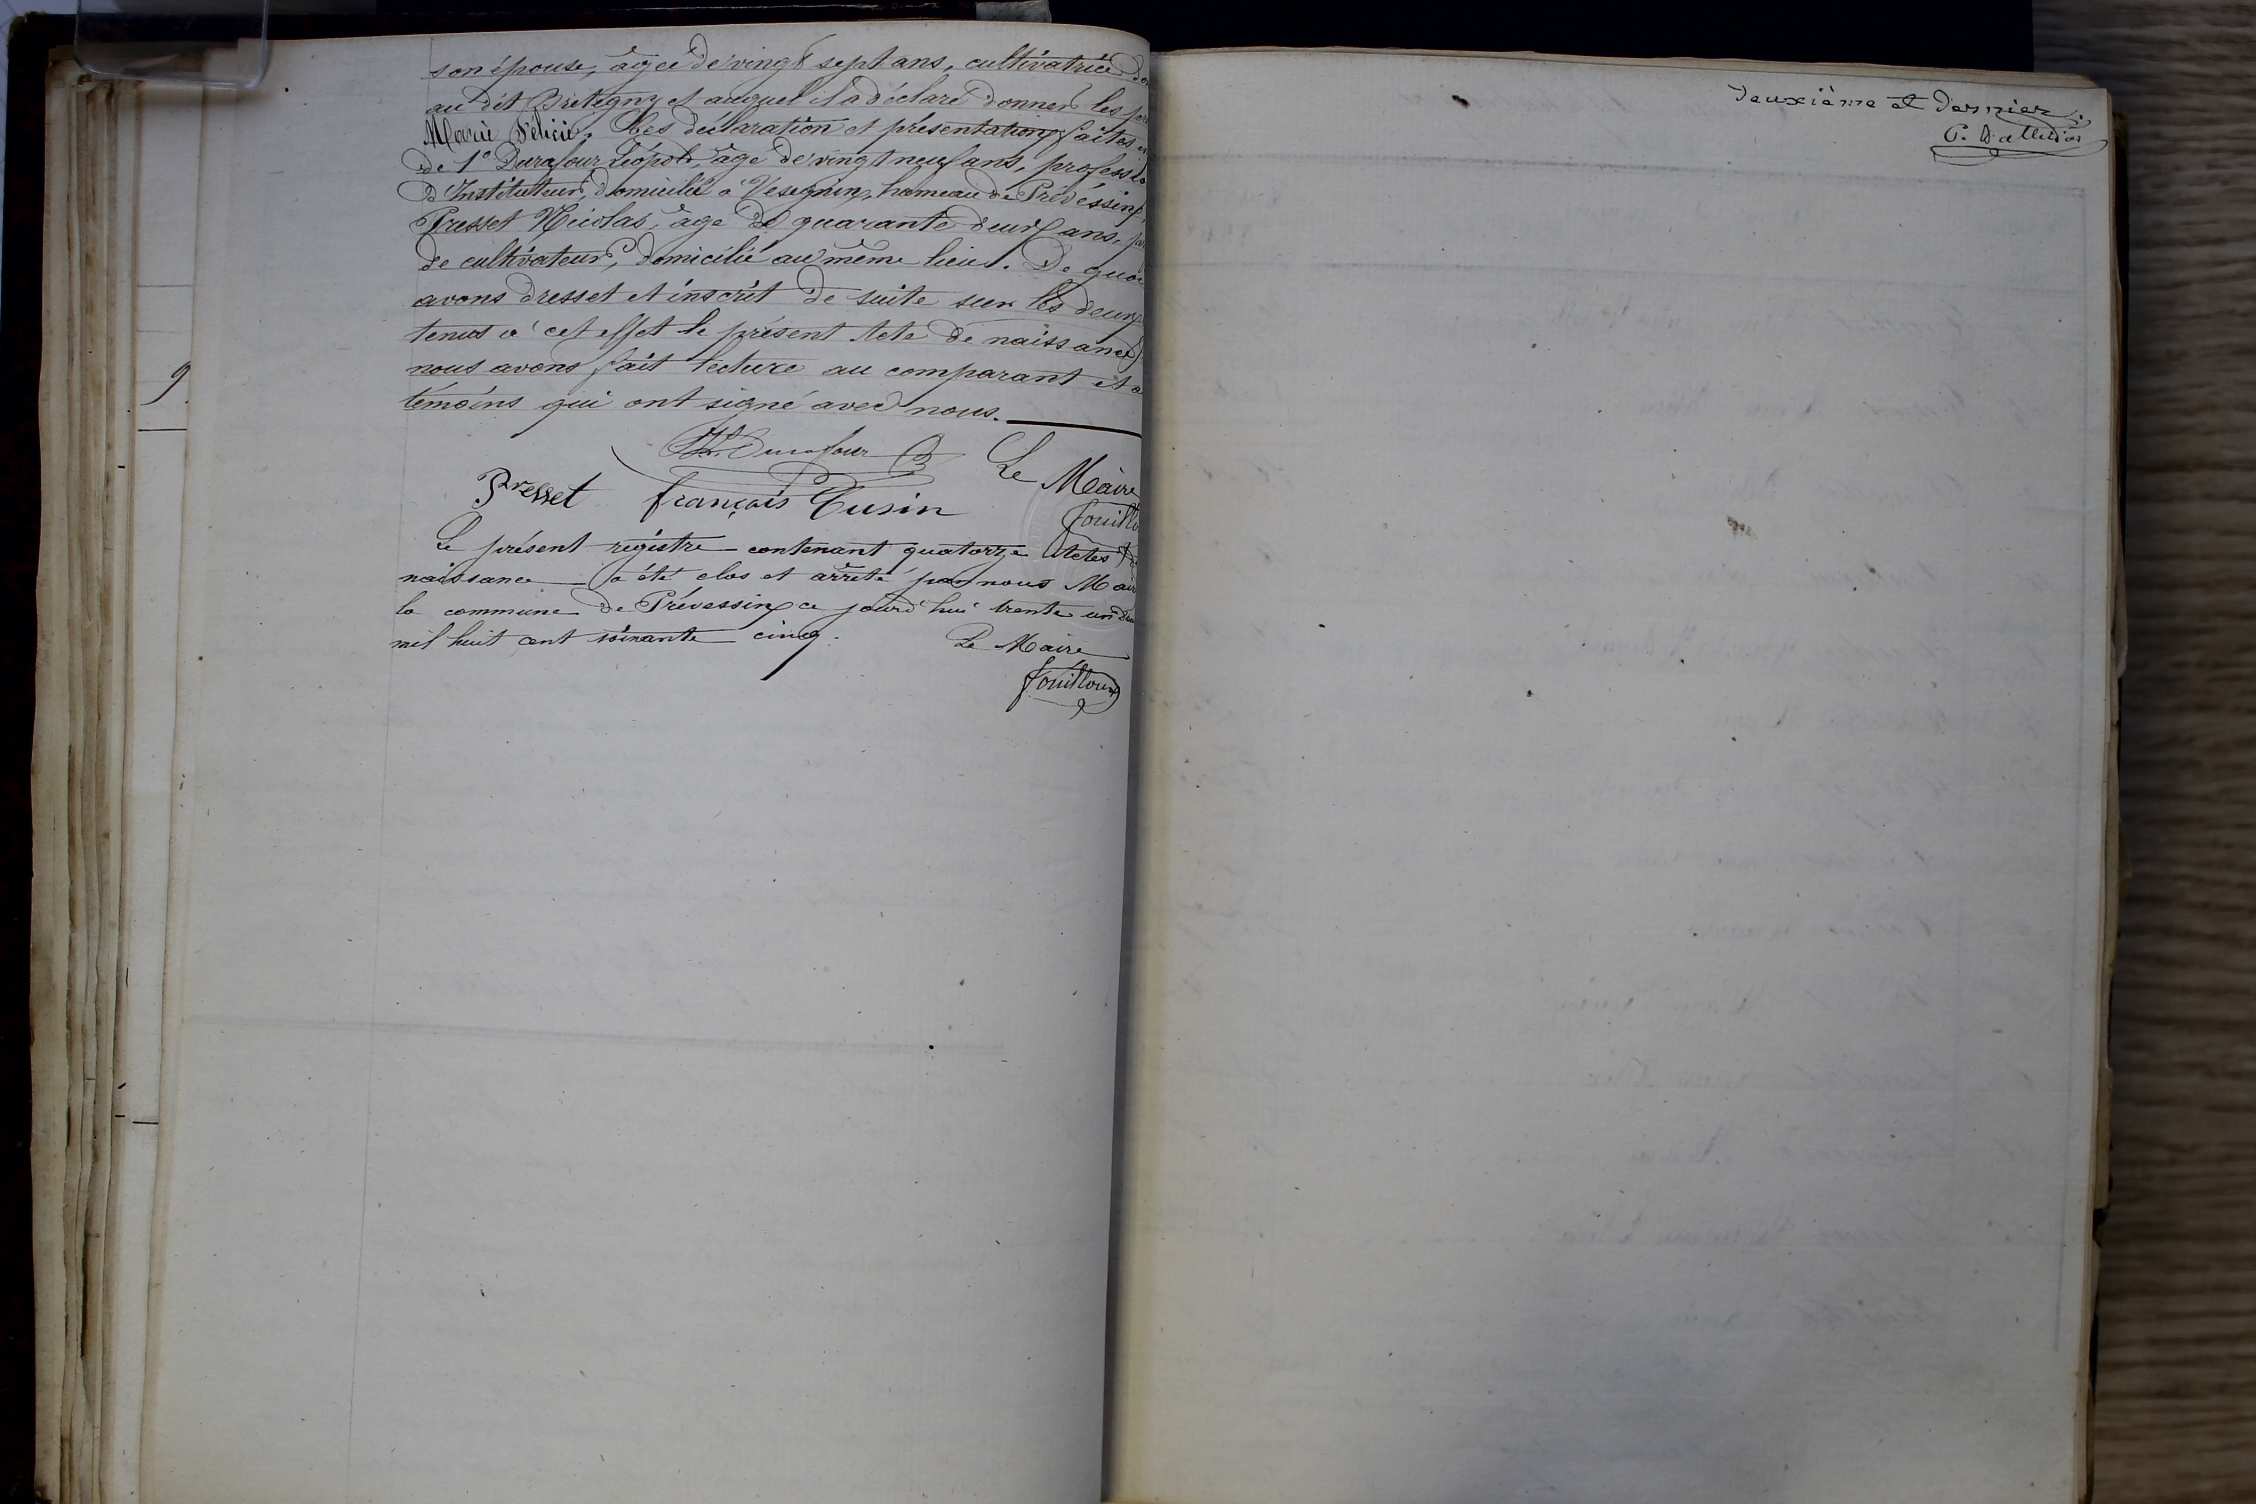 son épouse, âgée de vingt sept ans, cultivatrice do
au dit Brétegny et auquel il a déclaré donner les pré
Marie Félicie. Les déclaration et présentation faites en
de 1° Durafour Léopold, âgé de vingt neuf ans, professio
d'Instituteur, domicilié à Vésegnin, hameau de Prévéssin,
Presset Nicolas, âgé de quarante deux ans, pro
de cultivateur, domicilié au même lieu. De quoi
avons dresset et inscrit de suite sur les deux
tenus à cet effet le présent Acte de naissance
nous avons fait lecture au comparant et a
témoins qui ont signé avec nous.
Durafour
Le Maire
Presset françois Tusin
fouillo
Le présent registre contenant quatorze Actes de
naissance a été clos et arrêté par nous Mair
la commune de Prévessin ce jourd'hui trente un Dé
mil huit cent soixante cinq.
Le Maire
fouilloux
9
deuxième et dernier